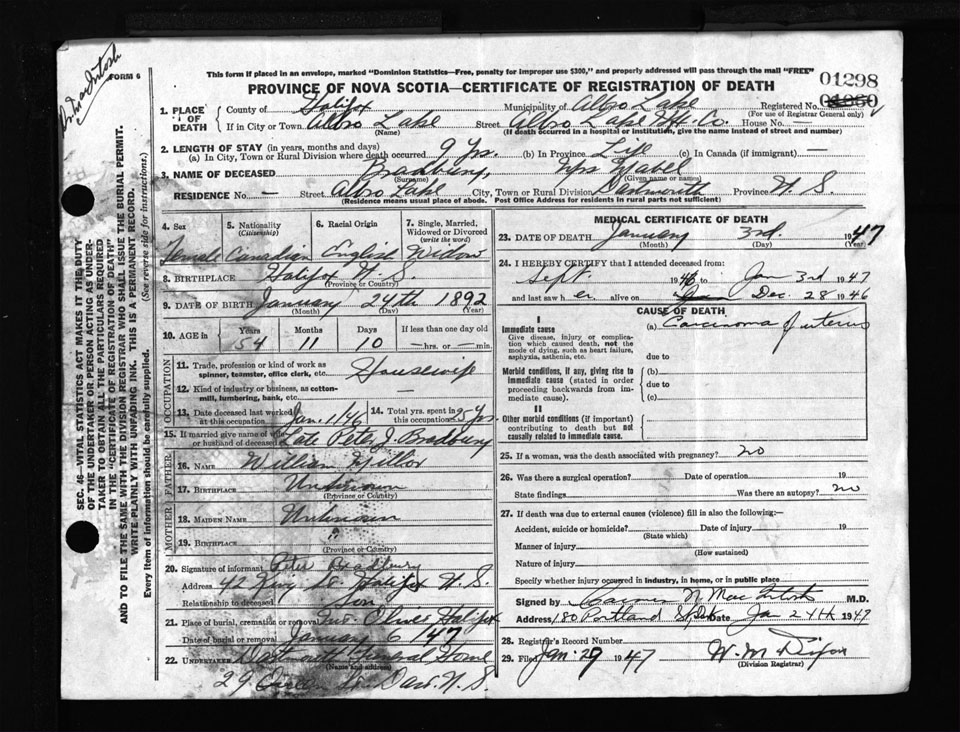 MacIntosh
FORM 6
This form if placed in an envelope, marked "Dominion Statistics—Free, penalty for improper use $300," and properly addressed will pass through the mail "FREE"
PROVINCE OF NOVA SCOTIA—CERTIFICATE OF REGISTRATION OF DEATH
01298
1. PLACE OF DEATH
County of Halifax Municipality of Albro Lake Registered No.
(For use of Registrar General only)
If in City or Town Albro Lake Street Albro Lake Hfx. Co. House No. —
(Name) (If death occurred in a hospital or institution, give the name instead of street and number)
2. LENGTH OF STAY (in years, months and days)
(a) In City, Town or Rural Division where death occurred 9 Yrs. (b) In Province Life (c) In Canada (if immigrant) —
3. NAME OF DECEASED Bradbury, Mrs Mabel
(Surname) (Given name or names)
RESIDENCE No. — Street Albro Lake City, Town or Rural Division Dartmouth Province N. S.
(Residence means usual place of abode. Post Office Address for residents in rural parts not sufficient)
4. Sex 5. Nationality (Citizenship) 6. Racial Origin 7. Single, Married, Widowed or Divorced (write the word)
Female Canadian English Widow
8. BIRTHPLACE Halifax N. S.
(Province or Country)
9. DATE OF BIRTH January 24th 1892
(Month) (Day) (Year)
10. AGE in Years Months Days If less than one day old
54 11 10 —hrs. or — min.
OCCUPATION
11. Trade, profession or kind of work as spinner, teamster, office clerk, etc. Housewife
12. Kind of industry or business, as cotton-mill, lumbering, bank, etc. —
13. Date deceased last worked at this occupation Jan. 1/46 14. Total yrs. spent in this occupation 25 Yrs.
15. If married give name of wife or husband of deceased Late Peter J. Bradbury
FATHER
16. NAME William
17. BIRTHPLACE Unknown
(Province or Country)
MOTHER
18. MAIDEN NAME Unknown
19. BIRTHPLACE "
(Province or Country)
20. Signature of informant Peter Bradbury
Address 42 St. Halifax N. S.
Relationship to deceased Son
21. Place of burial, cremation or removal Mt. Olivet Halifax
Date of burial or removal January 6/47
22. UNDERTAKER Dartmouth Funeral Home
(Name and address)
29 Queen St. Dart. N. S.
MEDICAL CERTIFICATE OF DEATH
23. DATE OF DEATH January 3rd. 1947
(Month) (Day) (Year)
24. I HEREBY CERTIFY that I attended deceased from:
Sept. 1946 to Jan 3rd 1947
and last saw her alive on Dec. 28 1946
CAUSE OF DEATH
I
Immediate cause
Give disease, injury or complication which caused death, not the mode of dying, such as heart failure, asphyxia, asthenia, etc.
(a) Carcinoma of uterus
due to
Morbid conditions, if any, giving rise to immediate cause (stated in order proceeding backwards from immediate cause).
(b)
due to
(c)
II
Other morbid conditions (if important) contributing to death but not causally related to immediate cause.
25. If a woman, was the death associated with pregnancy? no
26. Was there a surgical operation? Date of operation 19
State findings Was there an autopsy? no
27. If death was due to external causes (violence) fill in also the following:—
Accident, suicide or homicide? Date of injury 19
(State which)
Manner of injury
(How sustained)
Nature of injury
Specify whether injury occurred in industry, in home, or in public place
Signed by N MacIntosh M.D.
Address 180 Portland St Date Jan 24th 1947
28. Registrar's Record Number
29. Filed Jan. 29 1947 W. M. Dixon
(Division Registrar)
SEC. 46—VITAL STATISTICS ACT MAKES IT THE DUTY
OF THE UNDERTAKER OR PERSON ACTING AS UNDERTAKER TO OBTAIN ALL THE PARTICULARS REQUIRED
IN THE "CERTIFICATE OF REGISTRATION OF DEATH"
AND TO FILE THE SAME WITH THE DIVISION REGISTRAR WHO SHALL ISSUE THE BURIAL PERMIT.
WRITE PLAINLY WITH UNFADING INK. THIS IS A PERMANENT RECORD.
Every item of information should be carefully supplied. (See reverse side for instructions.)